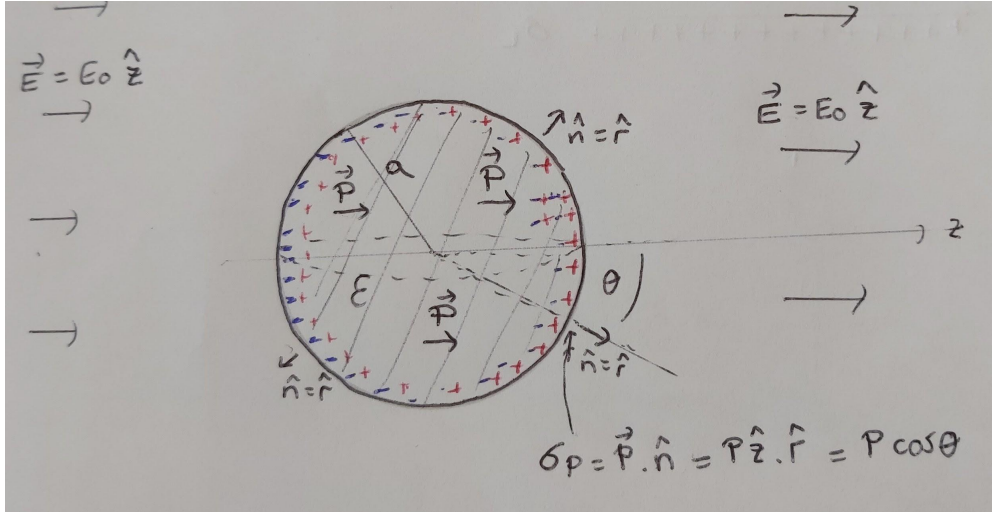 E⃗ = E₀ ẑ
E⃗ = E₀ ẑ
n̂ = r̂
a
P⃗
P⃗
z
ε
θ
P⃗
n̂ = r̂
n̂ = r̂
σp = P⃗ . n̂ = P ẑ . r̂ = P cosθ